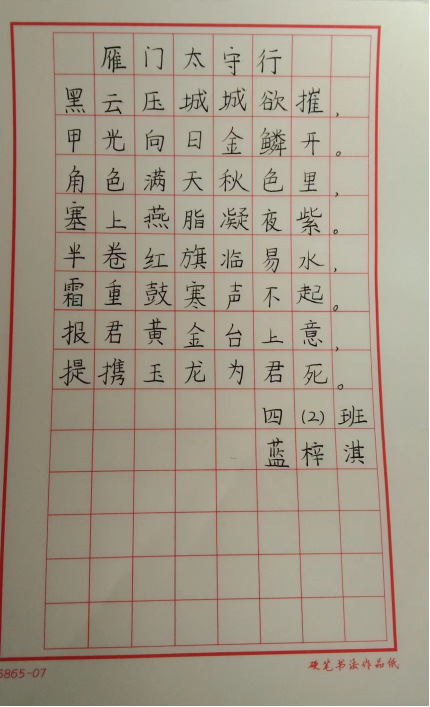 雁门太守行
黑云压城城欲摧，
甲光向日金鳞开。
角色满天秋色里，
塞上燕脂凝夜紫。
半卷红旗临易水，
霜重鼓寒声不起。
报君黄金台上意，
提携玉龙为君死。
四（2）班
蓝梓淇
5865-07
硬笔书法作品纸